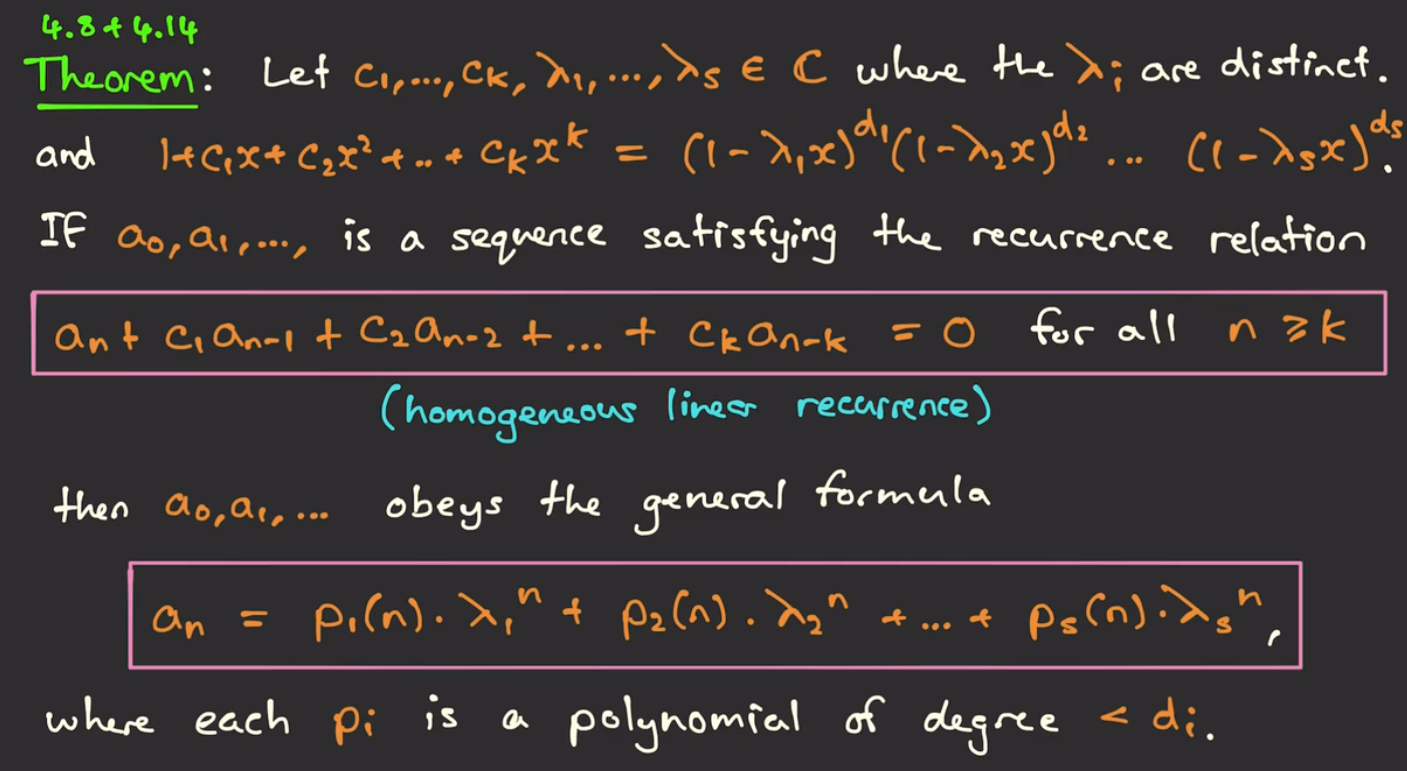 4.8 + 4.14
Theorem: Let c₁,...,cₖ, λ₁,...,λₛ ∈ ℂ where the λᵢ are distinct.
and 1+c₁x+c₂x²+..+cₖxᵏ = (1-λ₁x)^d₁(1-λ₂x)^d₂ ... (1-λₛx)^dₛ.
IF a₀,a₁,..., is a sequence satisfying the recurrence relation
aₙ + c₁aₙ₋₁ + c₂aₙ₋₂ + ... + cₖaₙ₋ₖ = 0 for all n ≥ k
(homogeneous linear recurrence)
then a₀,a₁,... obeys the general formula
aₙ = p₁(n)·λ₁ⁿ + p₂(n)·λ₂ⁿ + ... + pₛ(n)·λₛⁿ,
where each pᵢ is a polynomial of degree < dᵢ.